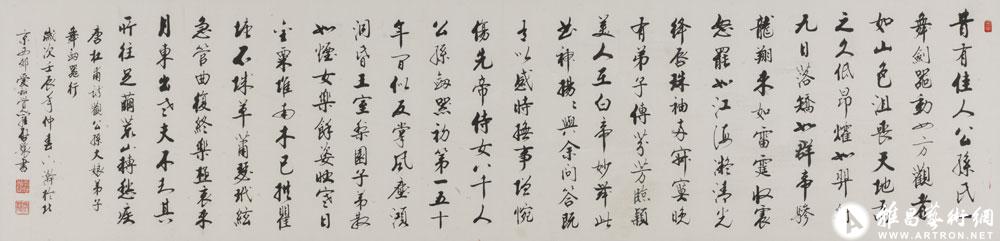 昔有佳人公孫氏一
舞劍器動四方觀者
如山色沮喪天地為
之久低昂㸌如羿射
九日落矯如群帝驂
龍翔來如雷霆收震
怒罷如江海凝清光
絳唇珠袖兩寂寞晚
有弟子傳芬芳臨潁
美人在白帝妙舞此
曲神揚揚與余問答既
有以感時撫事增惋
傷先帝侍女八千人
公孫劍器初第一五十
年間似反掌風塵澒
洞昏王室梨園子弟散
如煙女樂餘姿映寒日
金粟堆南木已拱瞿
塘石城草蕭瑟玳絃
急管曲復終樂極哀來
月東出老夫不知其
所往足繭荒山轉愁疾
李杜甫詩觀公孫大娘弟子
舞劍器行
歲次壬辰年仲春
京西
雅昌藝術網
WWW.ARTRON.NET